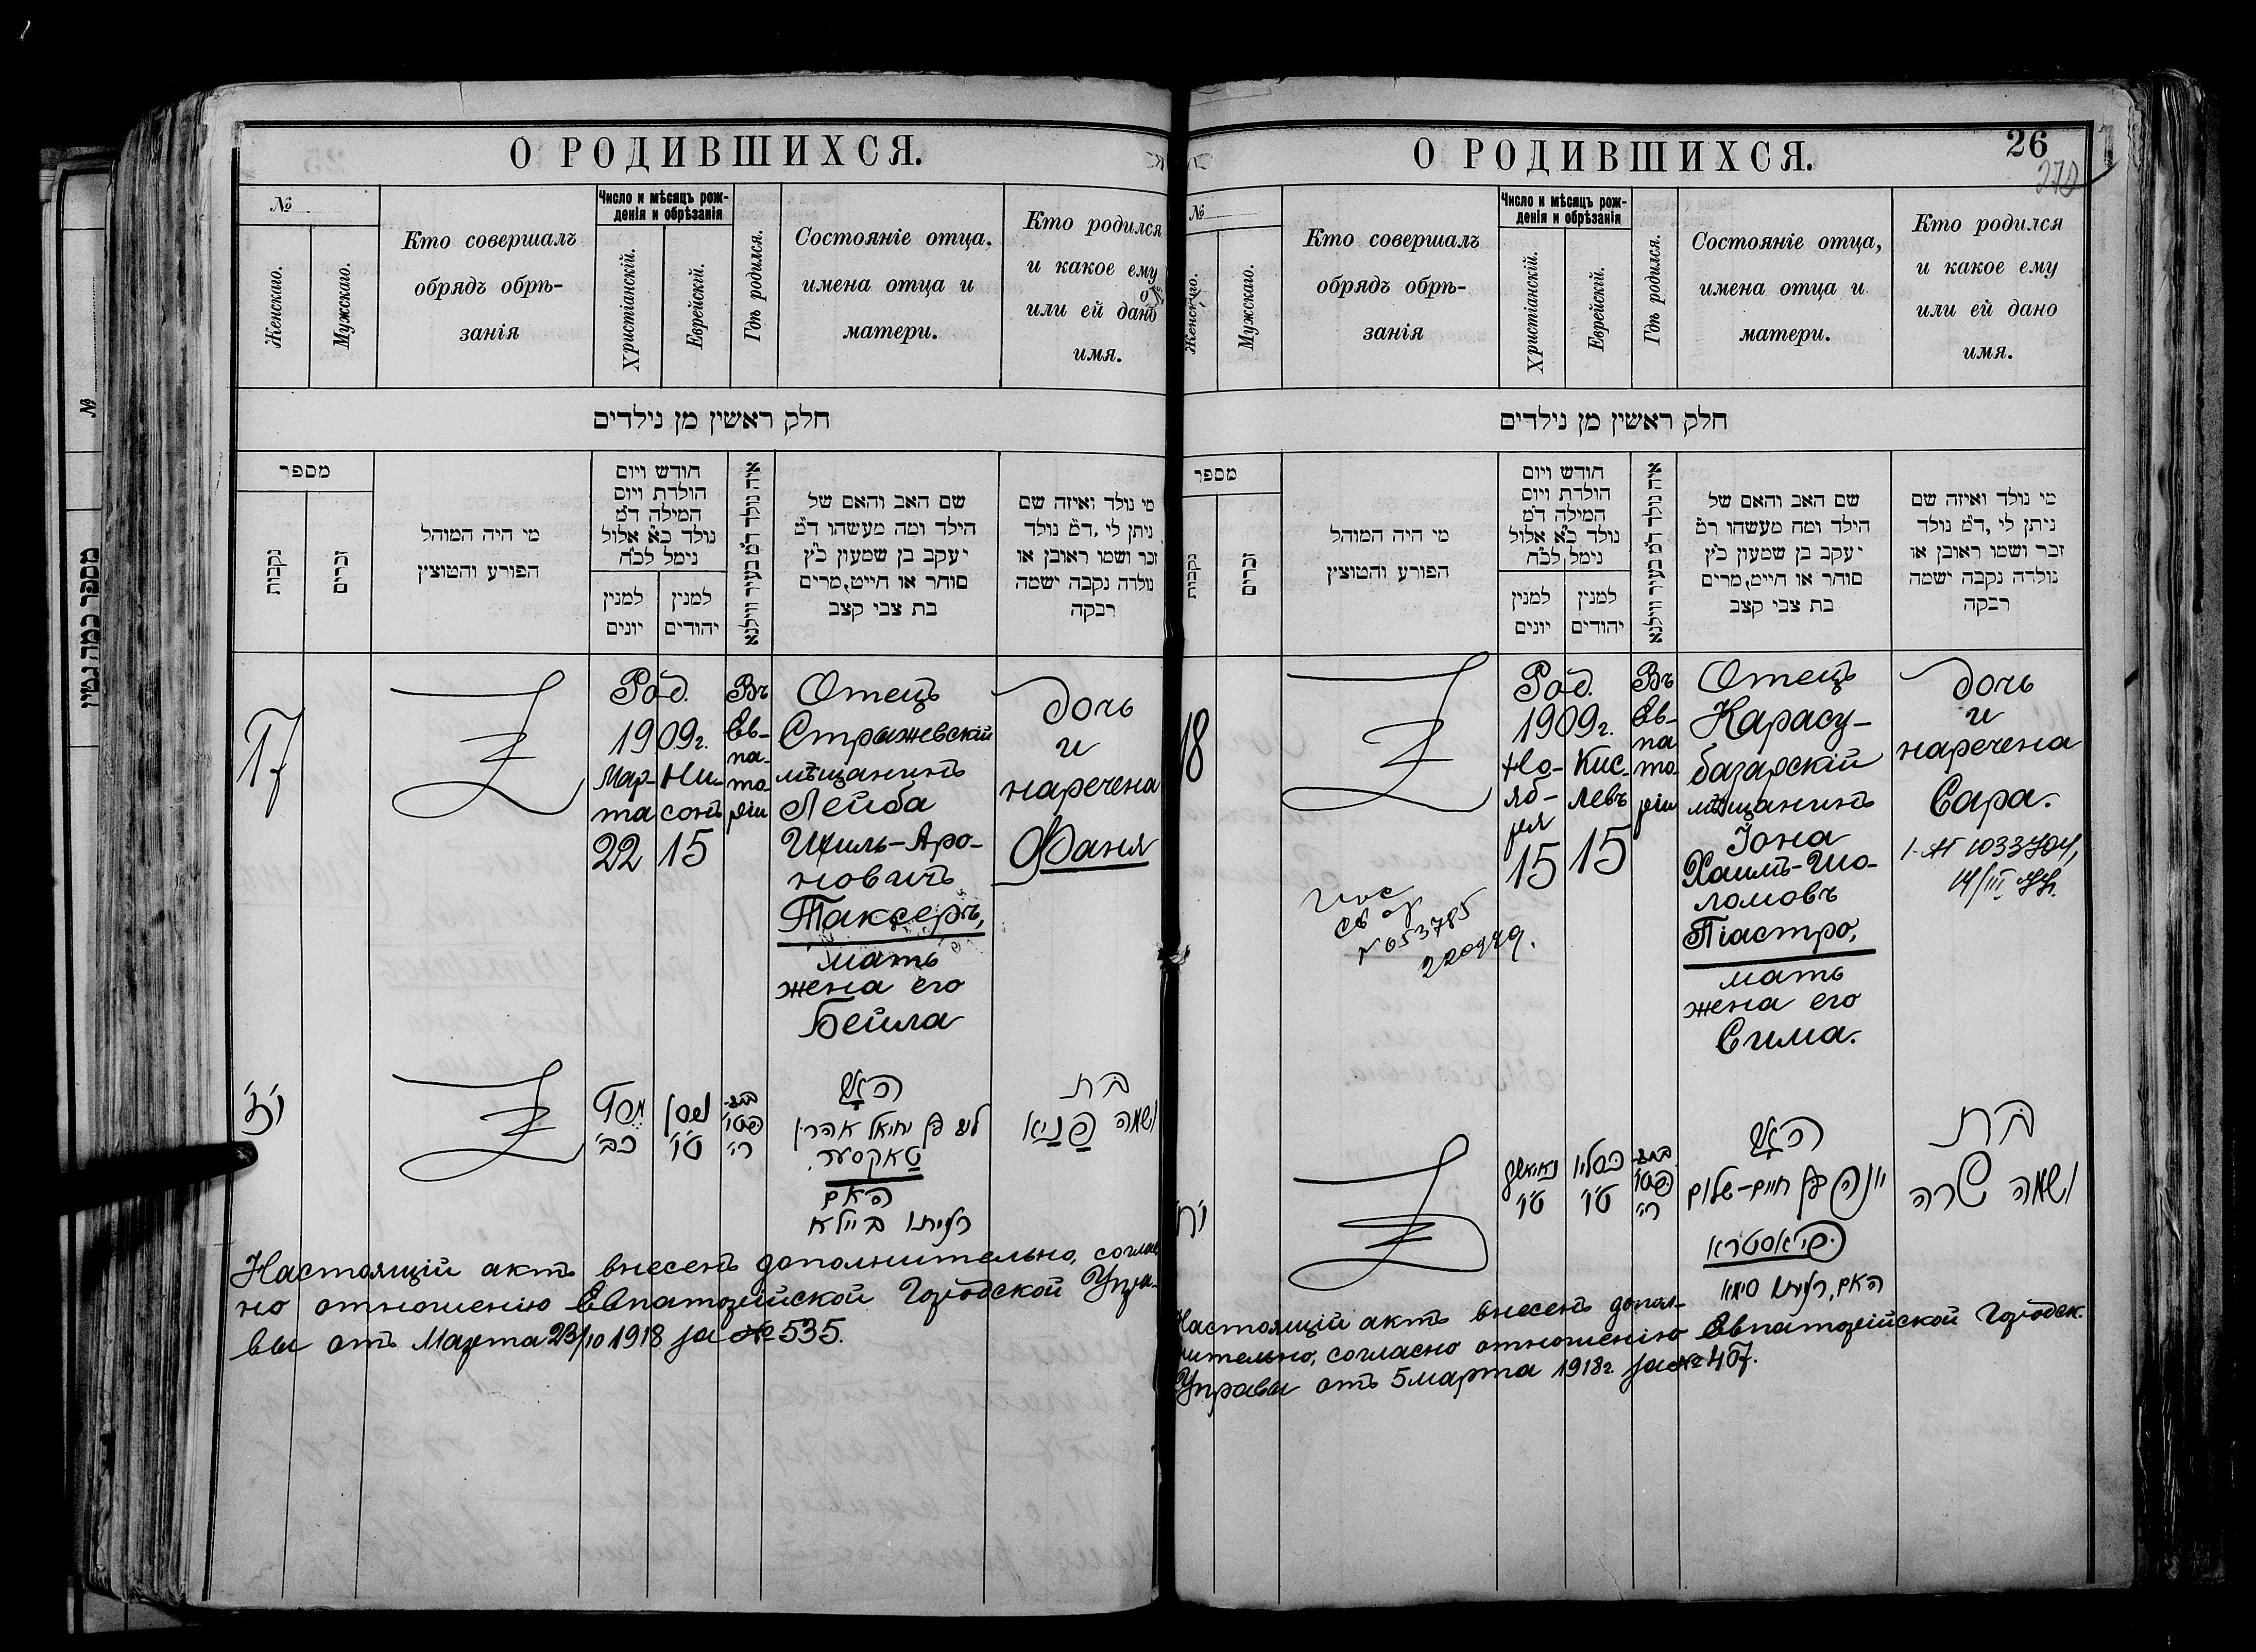 О РОДИВШИХСЯ.
№
Женскаго.
Мужскаго.
Кто совершалъ
обрядъ обрѣ-
занія
Число и мѣсяцъ рож-
денія и обрѣзанія
Христіанскій.
Еврейскій.
Гдѣ родился.
Состояніе отца,
имена отца и
матери.
Кто родился
и какое ему
или ей дано
имя.
חלק ראשון מן נולדים
מספר
נקבות
זכרים
מי היה המוהל
הפורע והמוצץ
חודש ויום
הולדת ויום
המילה ד״מ
נולד כ״א אלול
נימל לכ״ח
למנין
יונים
למנין
יהודים
איה נולד ד״מ בעיר ווילנא
שם האב והאם של
הילד ומה מעשהו ד״מ
יעקב בן שמעון כ״ץ
סוחר או חייט, מרים
בת צבי קצב
מי נולד ואיזה שם
ניתן לי, ד״מ נולד
זכר ושמו ראובן או
נולדה נקבה ישמה
רבקה
17
Род.
1909г.
Мар-
та
22
Ни-
сонъ
15
Въ
Ев-
па-
то-
ріи
Отецъ
Стрыжевскій
мѣщанинъ
Лейба
Ихиль-Аро-
новичъ
Таксеръ,
мать
жена его
Бейла
дочь
и
наречена
Фаня
י״ז
מארט
כב׳
ניסן
ט״ו
האב
ליב בן יחיאל אהרן
טאקסער.
האם
רעיתו ביילא
בת
ושמה פניא
Настоящій актъ внесенъ дополнительно, соглас
но отношенію Евпаторійской Городской Упра-
вы отъ Марта 23/10 1918 за № 535.
О РОДИВШИХСЯ.
26
№
Женскаго.
Мужскаго.
Кто совершалъ
обрядъ обрѣ-
занія
Число и мѣсяцъ рож-
денія и обрѣзанія
Христіанскій.
Еврейскій.
Гдѣ родился.
Состояніе отца,
имена отца и
матери.
Кто родился
и какое ему
или ей дано
имя.
חלק ראשון מן נולדים
מספר
נקבות
זכרים
מי היה המוהל
הפורע והמוצץ
חודש ויום
הולדת ויום
המילה ד״מ
נולד כ״א אלול
נימל לכ״ח
למנין
יונים
למנין
יהודים
איה נולד ד״מ בעיר ווילנא
שם האב והאם של
הילד ומה מעשהו ד״מ
יעקב בן שמעון כ״ץ
סוחר או חייט, מרים
בת צבי קצב
מי נולד ואיזה שם
ניתן לי, ד״מ נולד
זכר ושמו ראובן או
נולדה נקבה ישמה
רבקה
18
Род.
1909г.
Но-
яб-
ря
15
Кис-
левъ
15
Въ
Ев-
па
то-
ріи
Отецъ
Карасу-
базарскій
мѣщанинъ
Іона
Хаимъ-Шо-
ломовъ
Піастро,
мать
жена его
Сима.
дочь
и
наречена
Сара.
№ 053785
י״ח
ט״ו
כסליו
ט״ו
האב
יונה בן חיים-שלום
פיאסטרא
האם, רעיתו סימא
בת
ושמה שרה
Настоящій актъ внесенъ допол-
нительно, согласно отношенію Евпаторійской Городск.
Управы отъ 5 марта 1918г. за № 407.